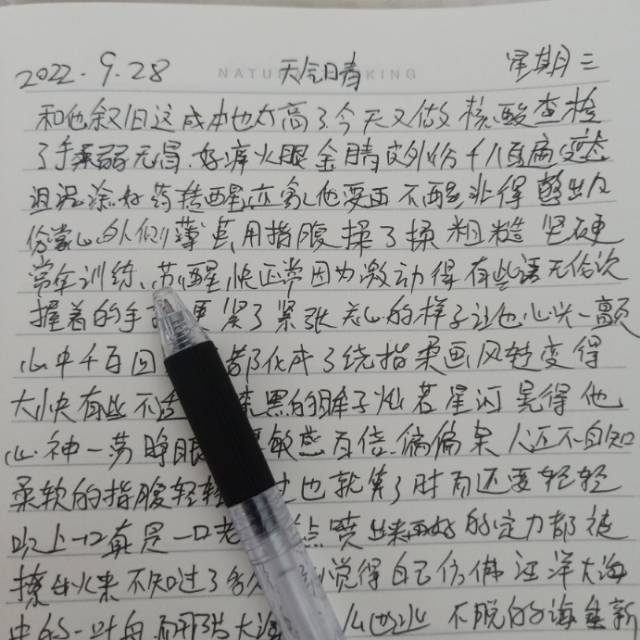 2022.9.28 NATU KING 天气晴 星期三
和他叙旧这成本也太高了今天又做了核酸查检
了手柔弱无骨好疼火眼金睛皮外伤千八百遍变态
沮涂好药转醒亦离他要西不醒非得整出几
伤掌心外侧薄茧用指腹揉了揉粗糙坚硬
常年训练苏醒快正常因为激动得有些语无伦次
握着的手更紧了紧张关心的样子让他心尖一颤
心中千百回都化成了绕指柔画风转变得
大快有些不黑的眸子灿若星河晃得他
心神一荡睁眼敏感百倍偏偏某人还不自知
柔软的指腹轻轻过也就算了时而还要轻轻
吹上一口真是一口老喷出来的定力都被
撩出火来不知过了觉得自己仿佛汪洋大海
中的一叶舟大海不脱的海鱼新